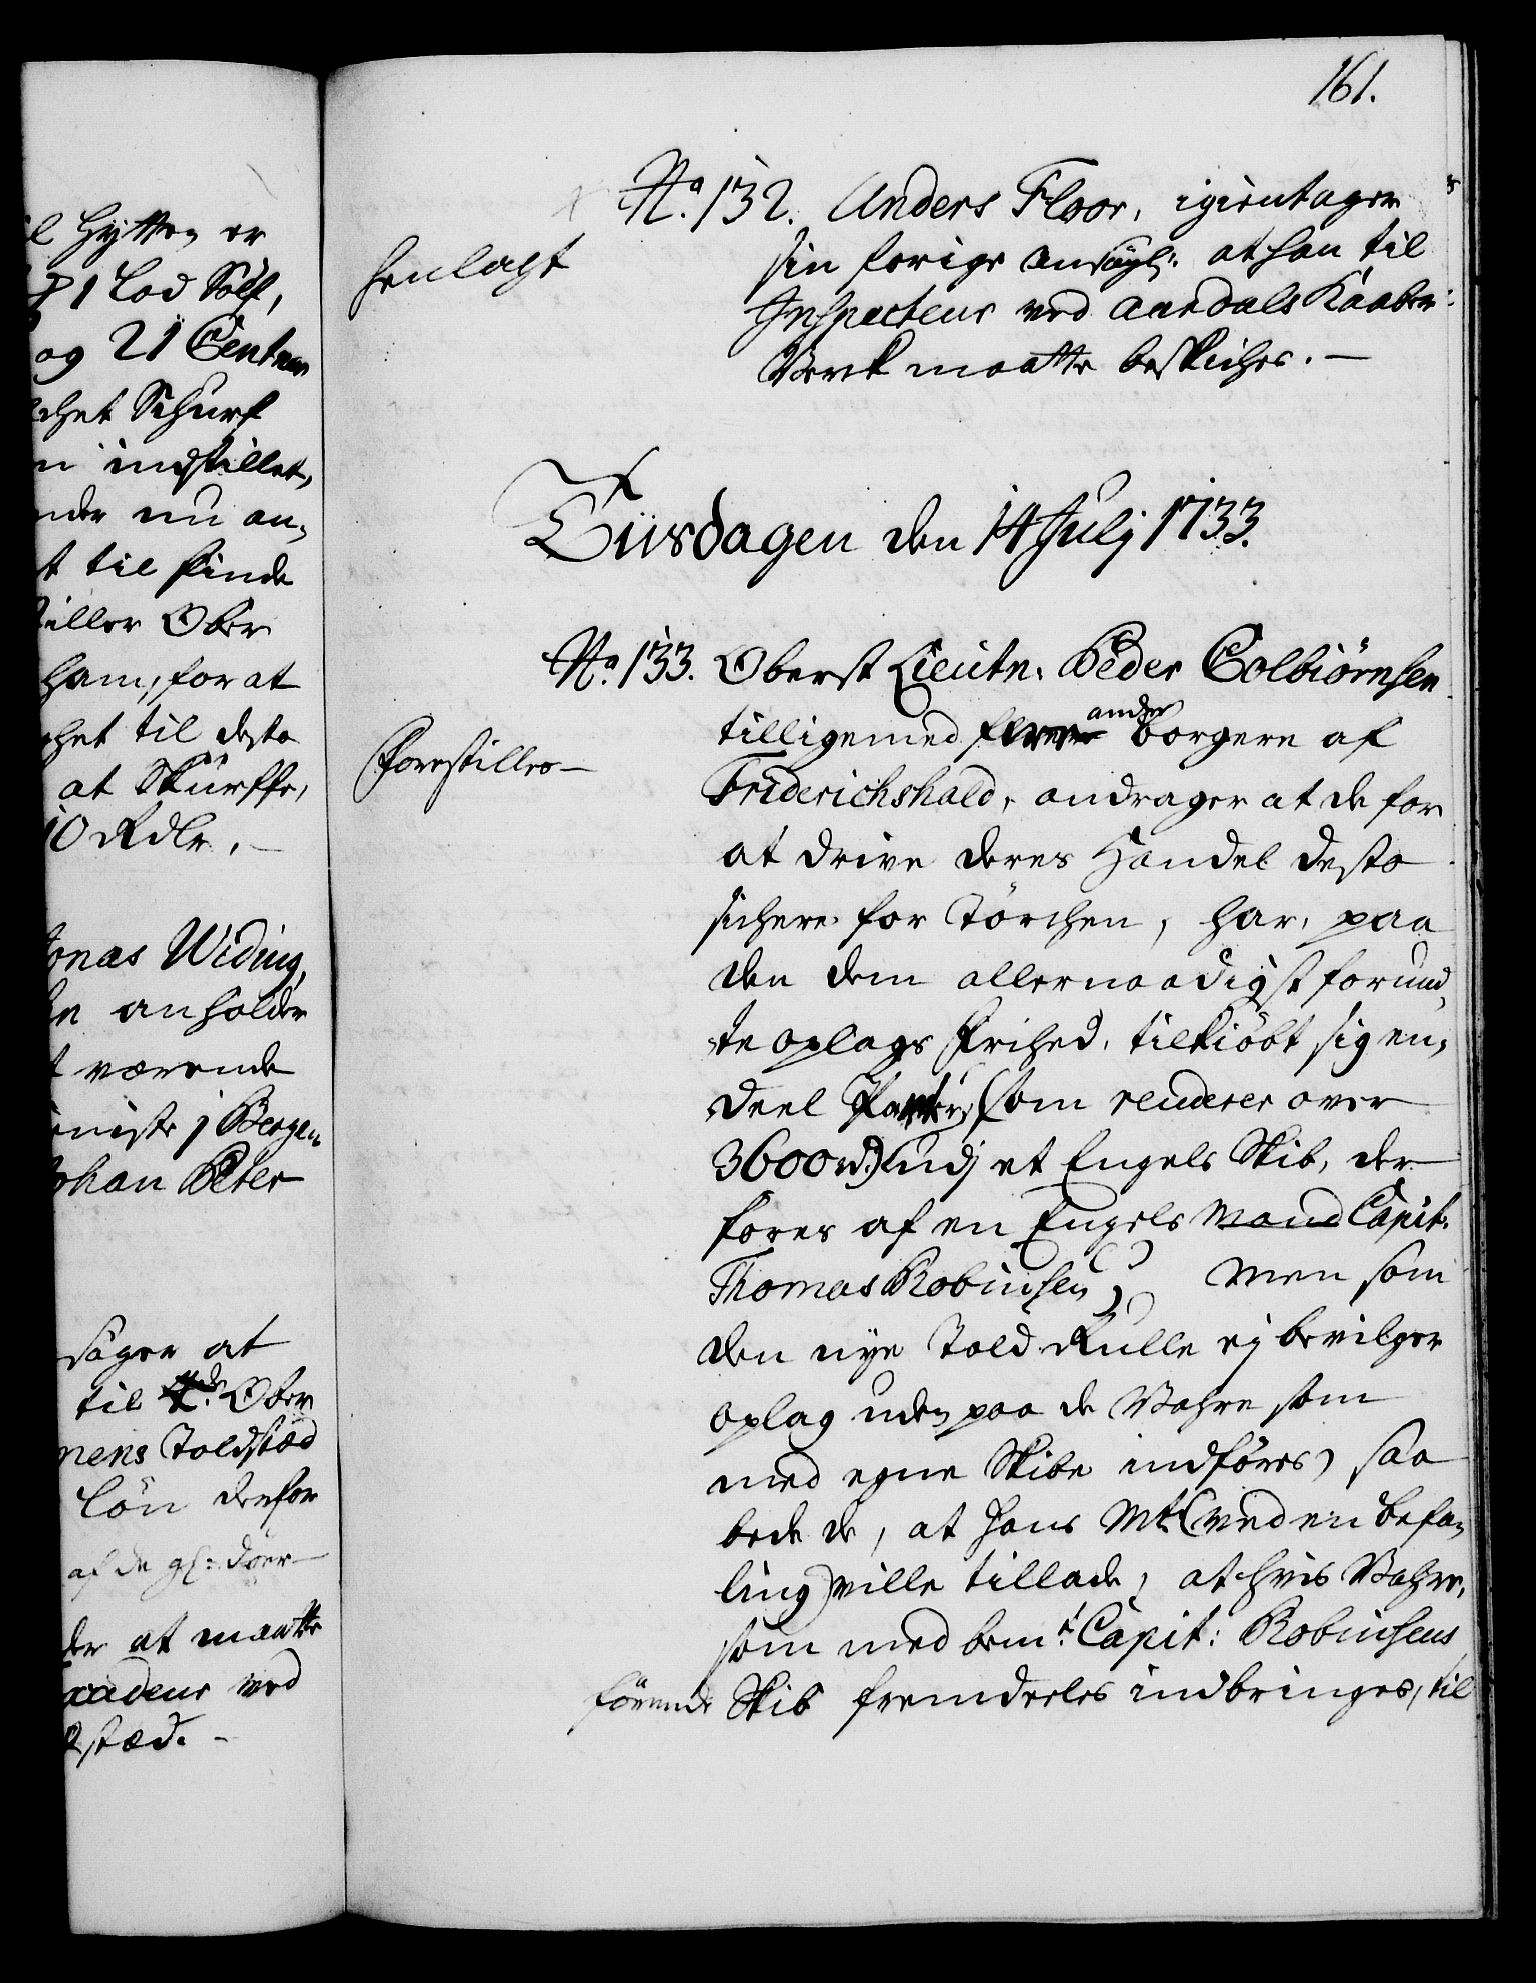 l Hytten er
1 Lod Sölf,
og 21 Centner
chet Schurf
n indstillet,
nder nu an-
t til finde
stiller Ober
ham, for at
chet til desto
at Skurffe,
10 Rdlr. -
Jonas Weding,
anholder
t værende
j Bergen
Johan Peter
søger at
til Ober
nens Toldsted
Lön derfor
af de
der at maatte
ved
stæd. -
161.
No. 132. Anders Floor, igientager
sin forige Ansøgl: at han til
henlagt
Inspecteur ved Aardals Kaaber-
Verk maatte beskiches. -
Tiisdagen den 14 Julj 1733.
No. 133. Oberst Lieutn. Peder Colbiörnsen
tilligemed flere andre Borgere af
Forestilles -
Friderichshald, andrager at de for
at drive deres Handel desto
sichere for Törchen, har, paa
den dem allernaadigst forund-
te oplags Frihed, tilkiöbt sig en-
deel Parter (som renderer over
3600 rd.) udj et Engels Skib, der
föres af en Engels Mand Capit:
Thomas Robinsen; Men som
den nye Told-Rulle ej bevilger
oplag uden paa de Vahre som
med egne Skibe indföres, saa
bede de, at Hans Mt. (ved en befa-
ling) ville tillade, at hvis Vahre,
som med bemt. Capit: Robinsens
förende Skib fremdeeles indbringes, til